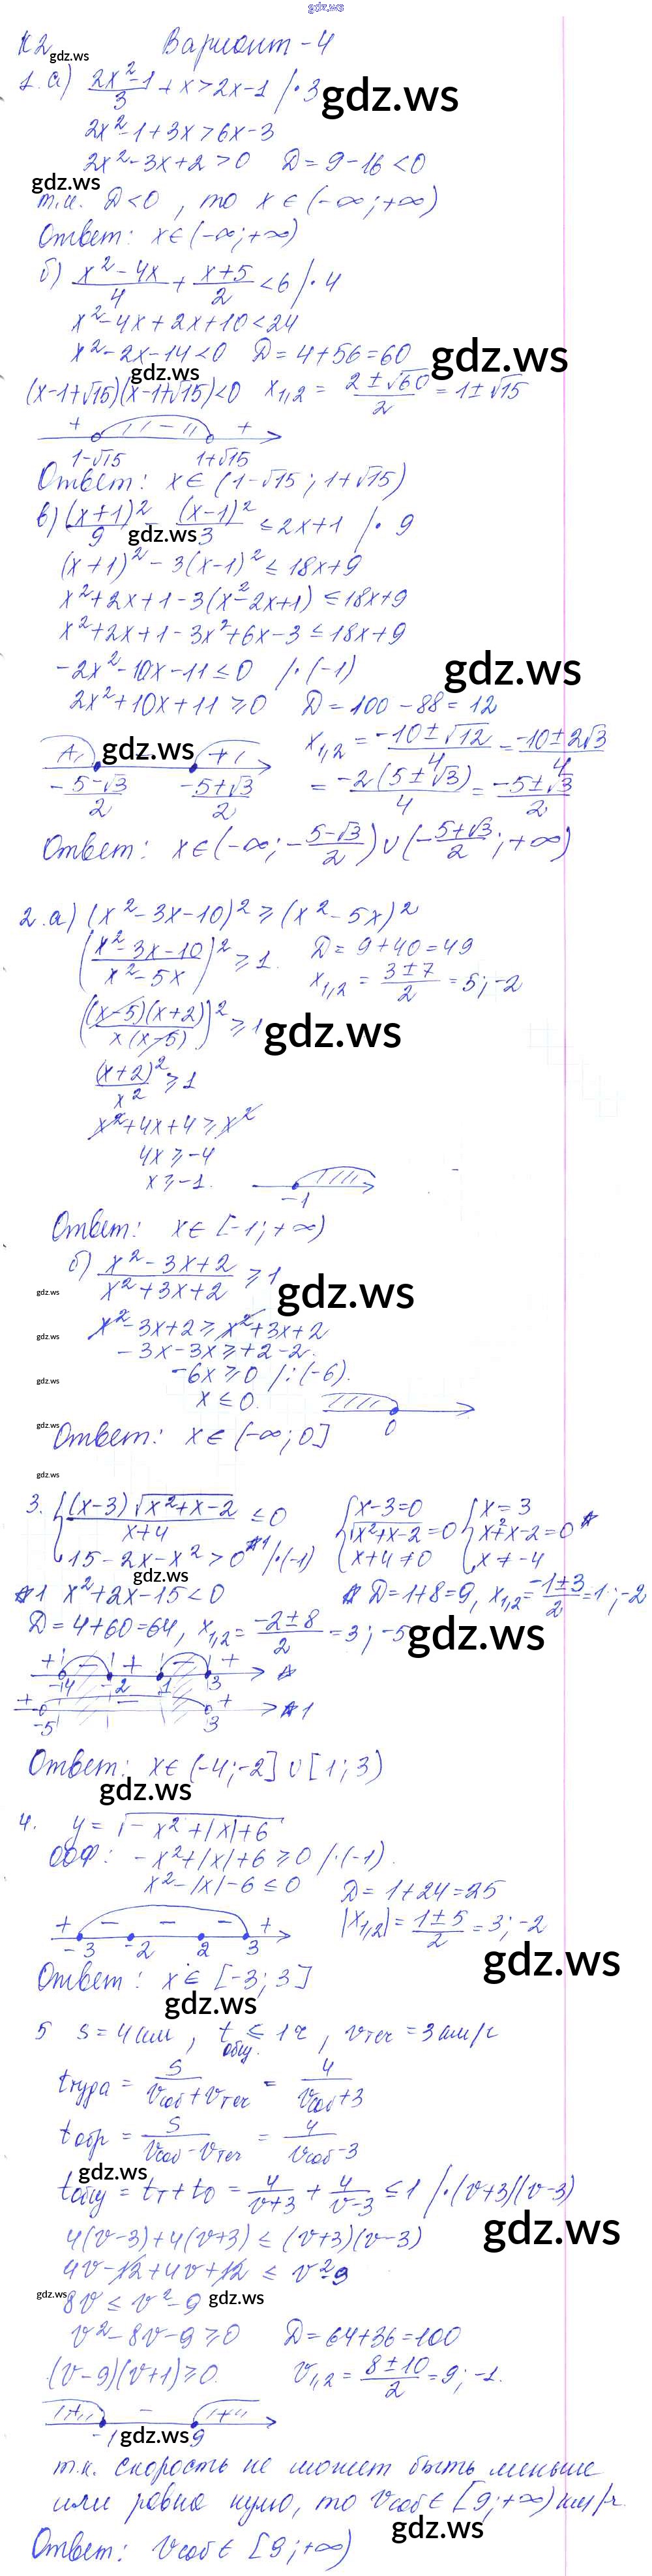 gdz.ws
К2 Вариант - 4
gdz.ws
1. а) (2x²-1)/3 + x > 2x-1 /·3
gdz.ws
2x²-1+3x>6x-3
2x²-3x+2>0 D=9-16<0
gdz.ws
т.к. D<0, то x∈(-∞;+∞)
Ответ: x∈(-∞;+∞)
б) (x²-4x)/4 + (x+5)/2 <6 /·4
x²-4x+2x+10<24
x²-2x-14<0 D=4+56=60
gdz.ws
gdz.ws
(x-1+√15)(x-1+√15)<0 x₁,₂ = (2±√60)/2 = 1±√15
+ - +
1-√15 1+√15
Ответ: x∈(1-√15; 1+√15)
в) (x+1)²/9 - (x-1)²/3 ≤2x+1 /·9
gdz.ws
(x+1)²-3(x-1)²≤18x+9
x²+2x+1-3(x²-2x+1)≤18x+9
x²+2x+1-3x²+6x-3≤18x+9
-2x²-10x-11≤0 /·(-1)
gdz.ws
2x²+10x+11≥0 D=100-88=12
gdz.ws
x₁,₂ = (-10±√12)/4 = (-10±2√3)/4
-(5-√3)/2 (-5+√3)/2 = -2(5±√3)/4 = (-5±√3)/2
Ответ: x∈(-∞; -(5-√3)/2)∪(-(5+√3)/2; +∞)
2. а) (x²-3x-10)²≥(x²-5x)²
((x²-3x-10)/(x²-5x))²≥1. D=9+40=49
x₁,₂ = (3±7)/2 = 5; -2
(((x-5)(x+2))/(x(x-5)))²≥1
gdz.ws
(x+2)²/x² ≥1
x²+4x+4≥x²
4x≥-4
x≥-1.
-1
Ответ: x∈[-1;+∞)
б) (x²-3x+2)/(x²+3x+2) ≥1
gdz.ws
gdz.ws
x²-3x+2≥x²+3x+2
gdz.ws
-3x-3x≥+2-2.
-6x≥0 /:(-6).
gdz.ws
x≤0.
0
gdz.ws
Ответ: x∈(-∞;0]
gdz.ws
3. {((x-3)√(x²+x-2))/(x+4) ≤0 {x-3=0 {x=3
√(x²+x-2)=0 x²+x-2=0*
15-2x-x²>0 *1 /·(-1) x+4≠0 x≠-4
gdz.ws
*1 x²+2x-15<0 * D=1+8=9, x₁,₂=(-1±3)/2=1;-2
D=4+60=64, x₁,₂=(-2±8)/2=3;-5
gdz.ws
+ - + - +
-4 -2 1 3 *
+ - +
-5 3 *1
Ответ: x∈(-4;-2]∪[1;3)
gdz.ws
4. y=√(-x²+|x|+6)
ООФ: -x²+|x|+6≥0 /·(-1).
x²-|x|-6≤0 D=1+24=25
|x₁,₂|=(1±5)/2=3;-2
+ - - - +
-3 -2 2 3
gdz.ws
Ответ: x∈[-3;3]
gdz.ws
5 s=4км, tобщ. ≤ 1ч, vтеч=3км/ч
tтуда = s/(vсоб+vтеч) = 4/(vсоб+3)
tобр = s/(vсоб-vтеч) = 4/(vсоб-3)
gdz.ws
tобщ = tт+tо = 4/(v+3) + 4/(v-3) ≤1 /·(v+3)(v-3)
gdz.ws
4(v-3)+4(v+3)≤(v+3)(v-3)
4v-12+4v+12≤v²-9
gdz.ws
8v≤v²-9
gdz.ws
v²-8v-9≥0 D=64+36=100
(v-9)(v+1)≥0. v₁,₂=(8±10)/2=9;-1.
-1 9
gdz.ws
т.к. скорость не может быть меньше
или равно нулю, то vсоб∈[9;+∞)км/ч.
gdz.ws
Ответ: vсоб∈[9;+∞)